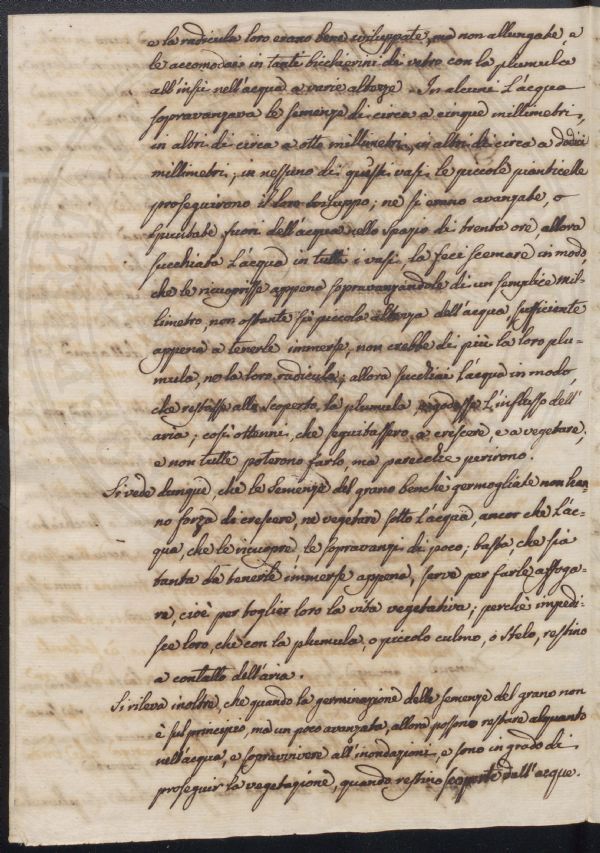 e la radicula loro erano bene sviluppate, ma non allungate, e
le accomodai in tanti bicchierini di vetro con la plumula
all'insù nell'acqua a varie altezze. In alcuni l'acqua
sopravanzava le semenze di circa a cinque millimetri,
in altri di circa a otto millimetri, in altri di circa a dodici
millimetri, in nessuno di questi vasi le piccole pianticelle
proseguirono il loro sviluppo; ne si erano avanzate, o
spuntate fuori dell'acqua nello spazio di trenta ore, allora
succhiata l'acqua in tutti i vasi, la feci scemare in modo,
che le ricuoprisse appena sopravanzandole di un semplice mil-
limetro, non ostante sì piccola altezza dell'acqua, sufficiente
appena a tenerle immerse, non crebbe di più la loro plu-
mula, no la loro radicula; allora succhiai l'acqua in modo
che restasse alla scoperto la plumula godesse l'influsso dell'
aria; così ottenni, che seguitassero a crescere, e a vegetare,
e non tutte poterono farlo, ma parecchie perirono.
Si vede dunque, che le semenze del grano benchè germogliate non han-
no forza di crescere, ne vegetare sotto l'acqua, ancor che l'ac-
qua, che le ricuopre, le sopravanzi di poco; basta, che sia
tanta da tenerle immerse appena, serve per farle affoga-
re, cioè per toglier loro la vita vegetativa; perchè impedi-
sce loro, che con la plumula, o piccolo culmo, o stelo, restino
a contatto dell'aria.
Si rileva inoltre, che quando la germinazione delle semenze del grano non
è sul principio, ma un poco avanzata, allora possono restare alquanto
nell'acqua, e sopravivere all'inondazioni, e sono in grado di
proseguir la vegetazione, quando restino scoperte dall'acque.